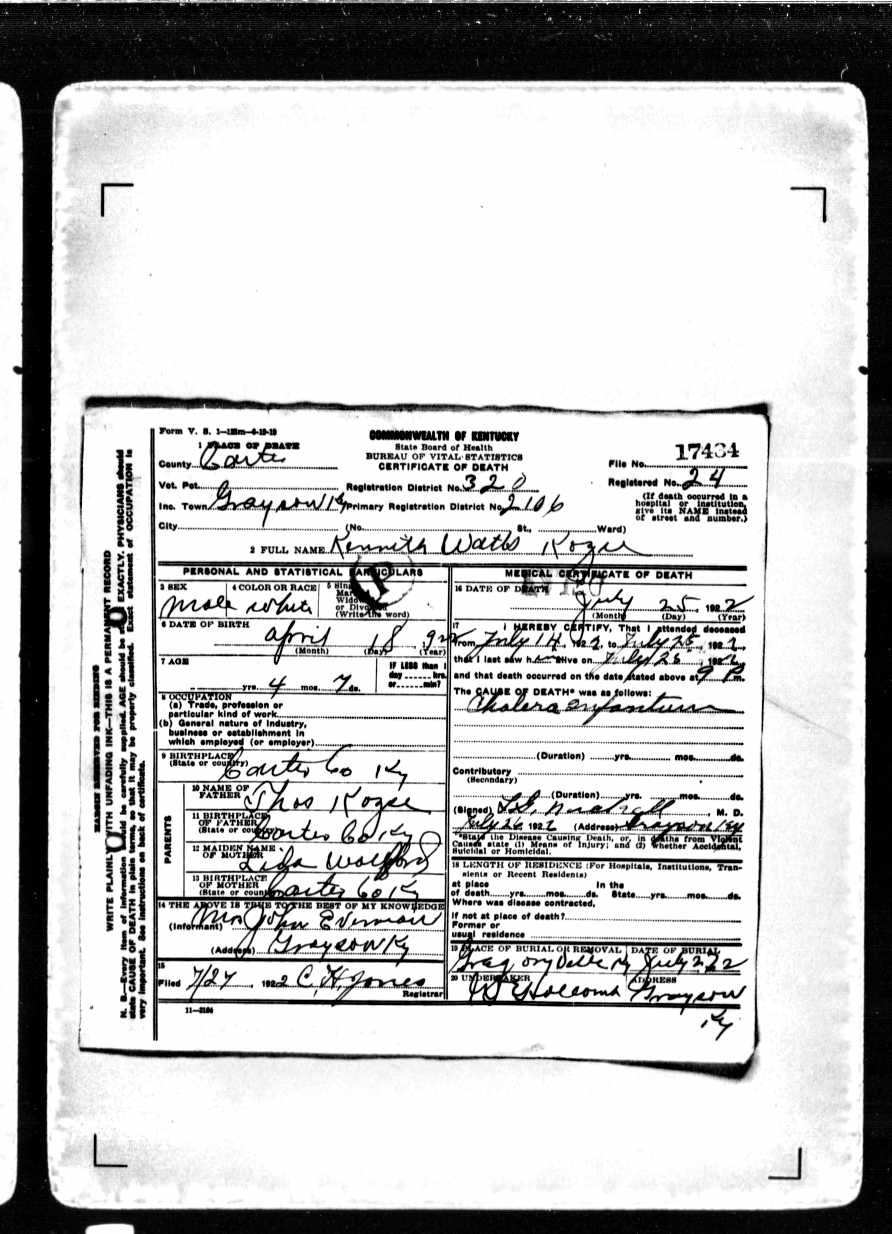 Form V. S. 1-125m-4-19-19
COMMONWEALTH OF KENTUCKY
State Board of Health
BUREAU OF VITAL STATISTICS
CERTIFICATE OF DEATH
1 PLACE OF DEATH
County Carter
File No. 17434
Vot. Pct. Registration District No. 320
Registered No. 24
Inc. Town Grayson Ky Primary Registration District No. 2106
(If death occurred in a hospital or institution, give its NAME instead of street and number.)
City (No. St., Ward)
2 FULL NAME Kenneth Watts Kozee
PERSONAL AND STATISTICAL PARTICULARS
3 SEX Male
4 COLOR OR RACE White
5
(Write the word)
6 DATE OF BIRTH April 18 922
(Month) (Day) (Year)
7 AGE
yrs. 4 mos. 7 ds.
IF LESS than 1
day hrs.
or min?
8 OCCUPATION
(a) Trade, profession or
particular kind of work
(b) General nature of industry,
business or establishment in
which employed (or employer)
9 BIRTHPLACE
(State or country) Carter Co Ky
PARENTS
10 NAME OF
FATHER Thos Kozee
11 BIRTHPLACE
OF FATHER
(State or country) Carter Co Ky
12 MAIDEN NAME
OF MOTHER Lida Wolfford
13 BIRTHPLACE
OF MOTHER
(State or country) Carter Co Ky
14 THE ABOVE IS TRUE TO THE BEST OF MY KNOWLEDGE
(Informant) Mrs John Everman
(Address) Grayson Ky
15
Filed 7/27, 1922 C. H. Jones
Registrar
11-3184
MEDICAL CERTIFICATE OF DEATH
16 DATE OF DEATH July 25, 1922
(Month) (Day) (Year)
17 I HEREBY CERTIFY, That I attended deceased
from July 14, 1922, to July 25, 1922,
that I last saw h alive on July 25, 1922
and that death occurred on the date stated above at 9 P m.
The CAUSE OF DEATH* was as follows:
Cholera Infantum
(Duration) yrs. mos. ds.
Contributory
(Secondary)
(Duration) yrs. mos. ds.
(Signed) Marshall, M. D.
July 26 1922 (Address) Grayson Ky
*State the Disease Causing Death, or, in deaths from Violent
Causes state (1) Means of Injury; and (2) whether Accidental,
Suicidal or Homicidal.
18 LENGTH OF RESIDENCE (For Hospitals, Institutions, Transients or Recent Residents)
at place In the
of death yrs. mos. ds. State yrs. mos. ds.
Where was disease contracted,
If not at place of death?
Former or
usual residence
19 PLACE OF BURIAL OR REMOVAL DATE OF BURIAL
20 UNDERTAKER ADDRESS
Grayson
Ky
MARGIN RESERVED FOR BINDING
WRITE PLAINLY WITH UNFADING INK—THIS IS A PERMANENT RECORD
N. B.—Every item of information should be carefully supplied. AGE should be stated EXACTLY. PHYSICIANS should
state CAUSE OF DEATH in plain terms, so that it may be properly classified. Exact statement of OCCUPATION is
very important. See instructions on back of certificate.